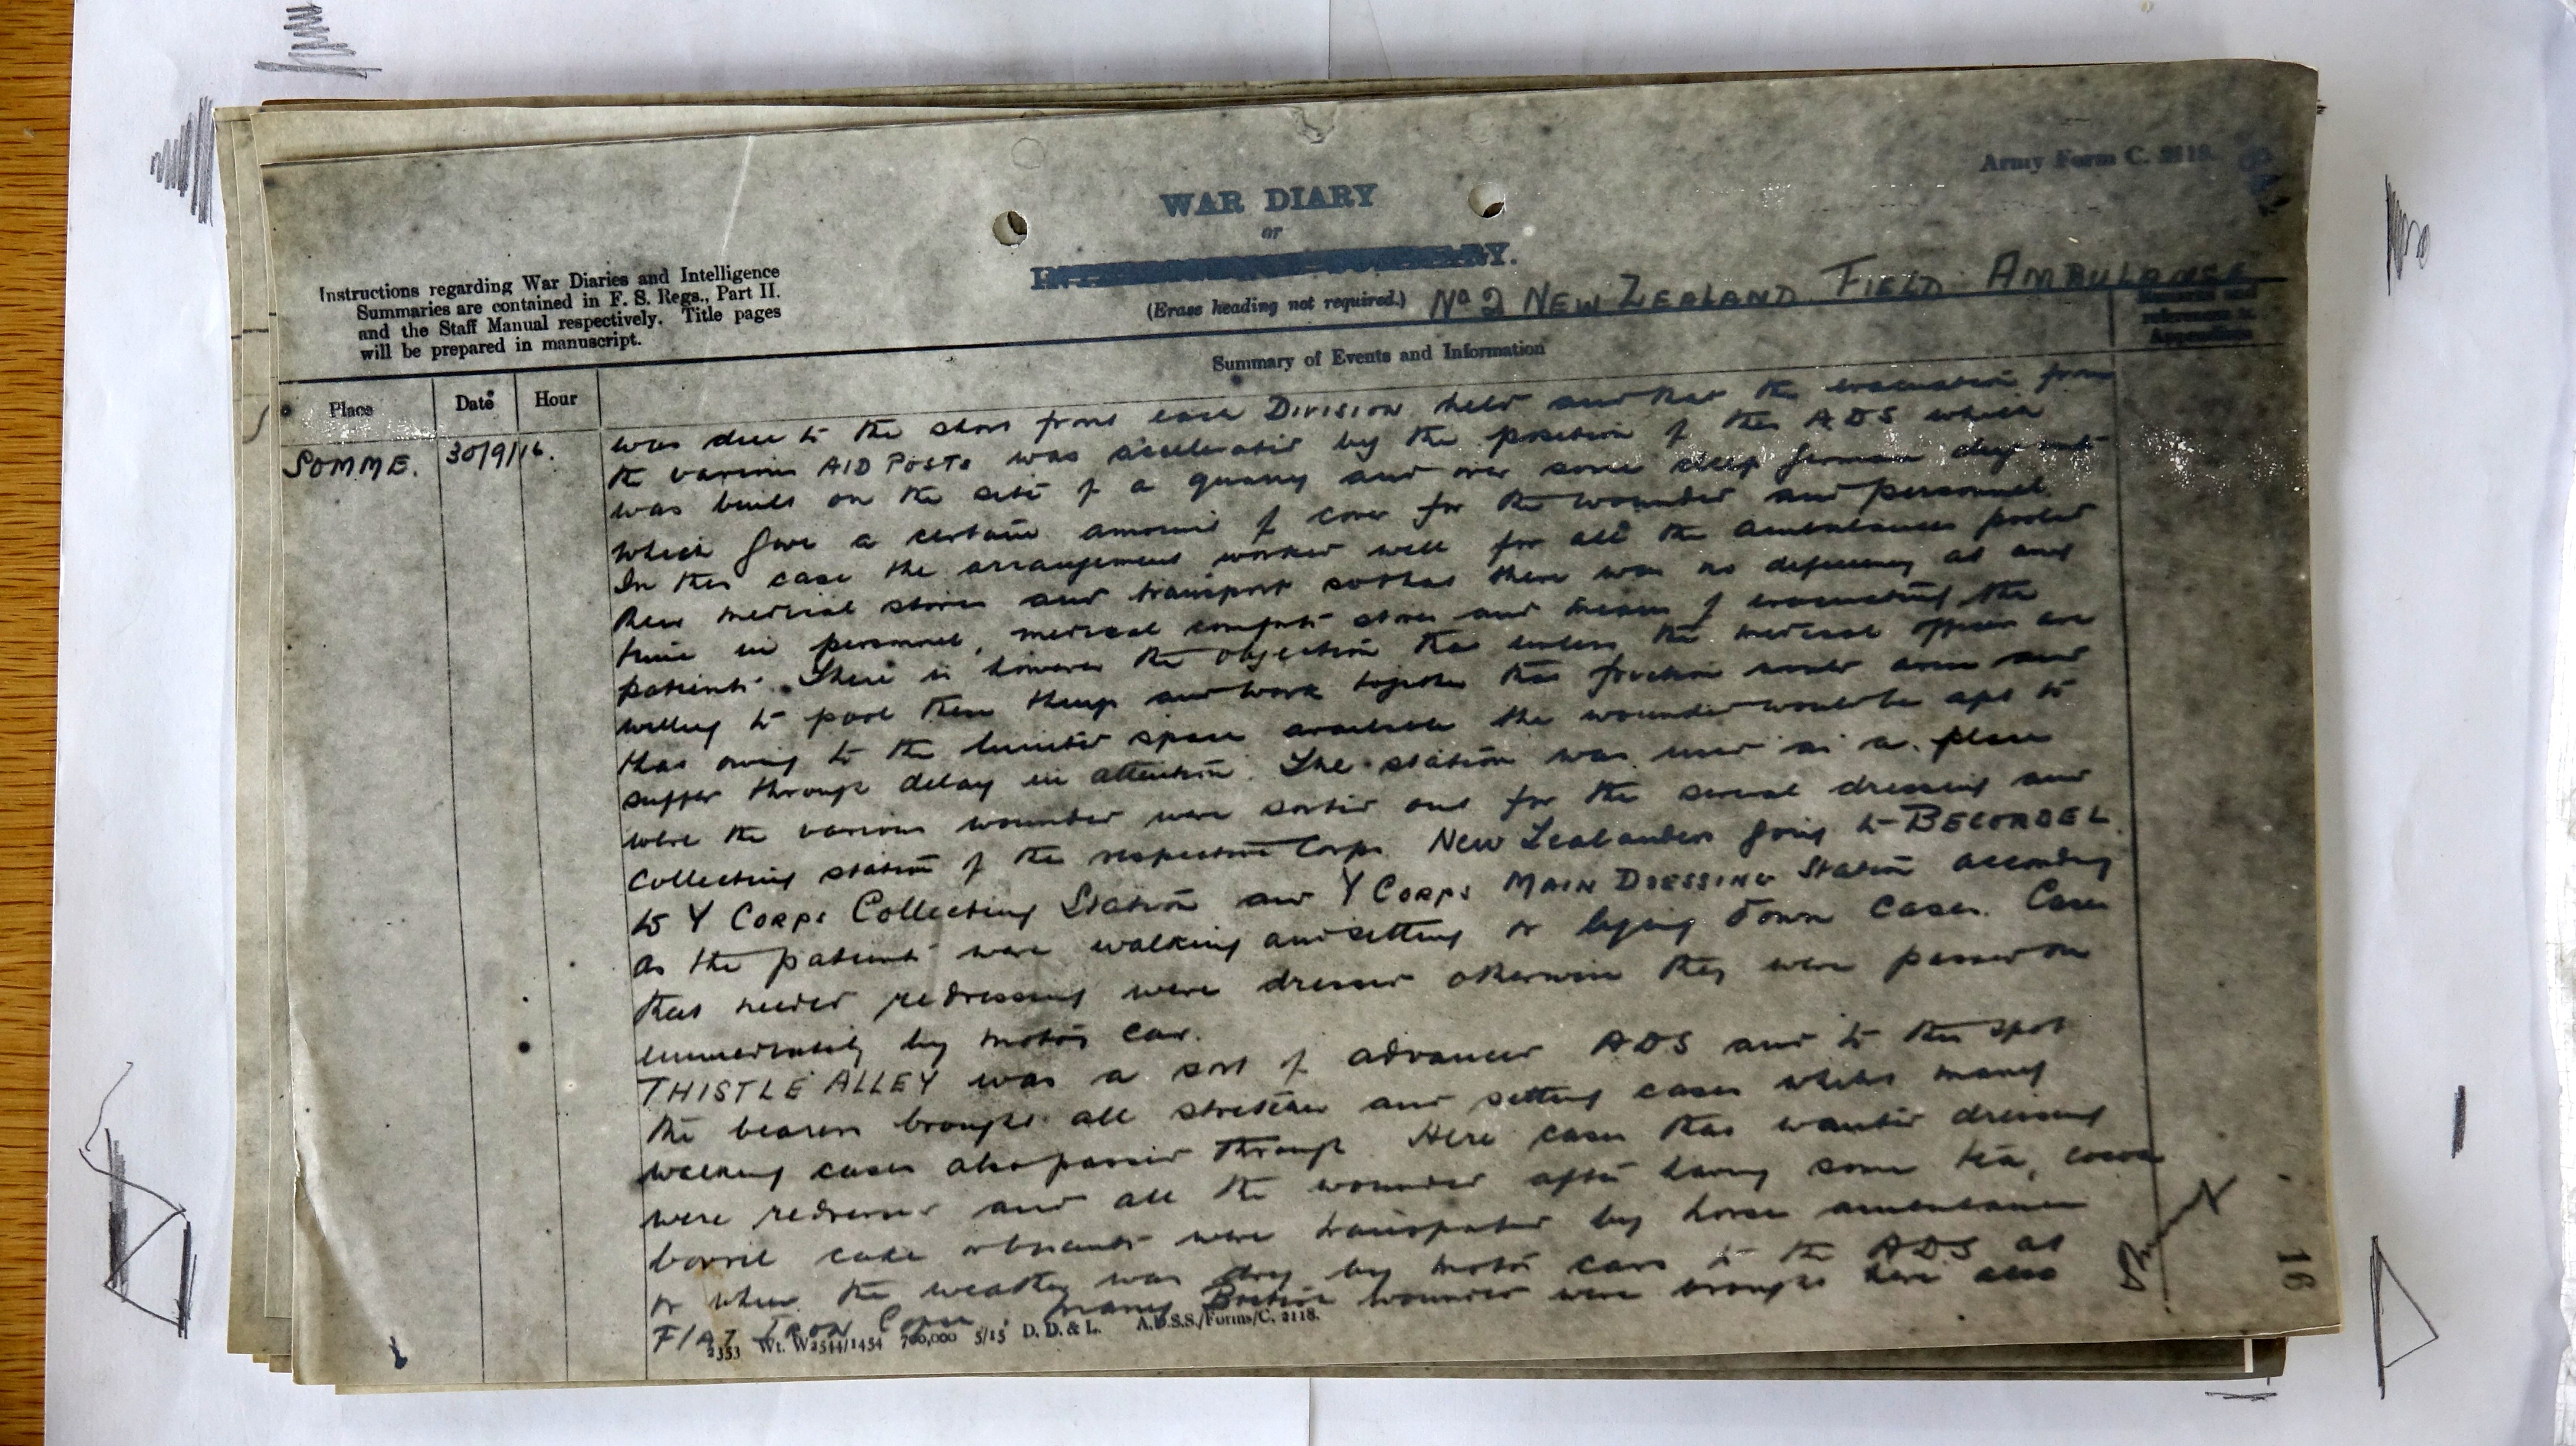 Army Form C. 2118.
WAR DIARY
or
(Erase heading not required.)
No 2 NEW ZEALAND FIELD AMBULANCE
Instructions regarding War Diaries and Intelligence
Summaries are contained in F. S. Regs., Part II.
and the Staff Manual respectively. Title pages
will be prepared in manuscript.
Remarks and
references to
Appendices
Summary of Events and Information
Place Date Hour
SOMME. 30/9/16.
was due to the short front each DIVISION held and that the evacuation from
the various AID POSTS was accelerated by the position of the ADS which
was built on the site of a quarry and over some deep German dug outs
which gave a certain amount of cover for the wounded and personnel.
In this case the arrangement worked well for all the ambulances pooled
their medical stores and transport so that there was no deficiency at any
time in personnel, medical comforts stores and means of evacuating the
patients. There is however the objection that unless the medical officers are
willing to pool their things and work together that friction would arise and
that owing to the limited space available the wounded would be apt to
suffer through delay in attention. The station was used as a place
were the various wounded were sorted out for the several dressing and
Collecting station of the respective Corps. New Zealanders going to BECORDEL
to Y CORPS Collecting Station and Y CORPS MAIN DRESSING Station according
as the patients were walking and sitting or lying down cases. Cases
that needed redressing were dressed otherwise they were passed on
immediately by motor car.
THISTLE ALLEY was a sort of advanced ADS and to this spot
the bearers brought all stretcher and sitting cases whilst many
walking cases also passed through. Here cases that wanted dressing
were redressed and all the wounded after having some tea, cocoa
bovril cake or biscuits were transported by horse ambulance
or when the weather was dry by motor cars to the ADS at
FLAT IRON Copse. Many British wounded were brought here also
2353 Wt. W2544/1454 700,000 5/15 D. D. & L. A.D.S.S./Forms/C. 2118.
16